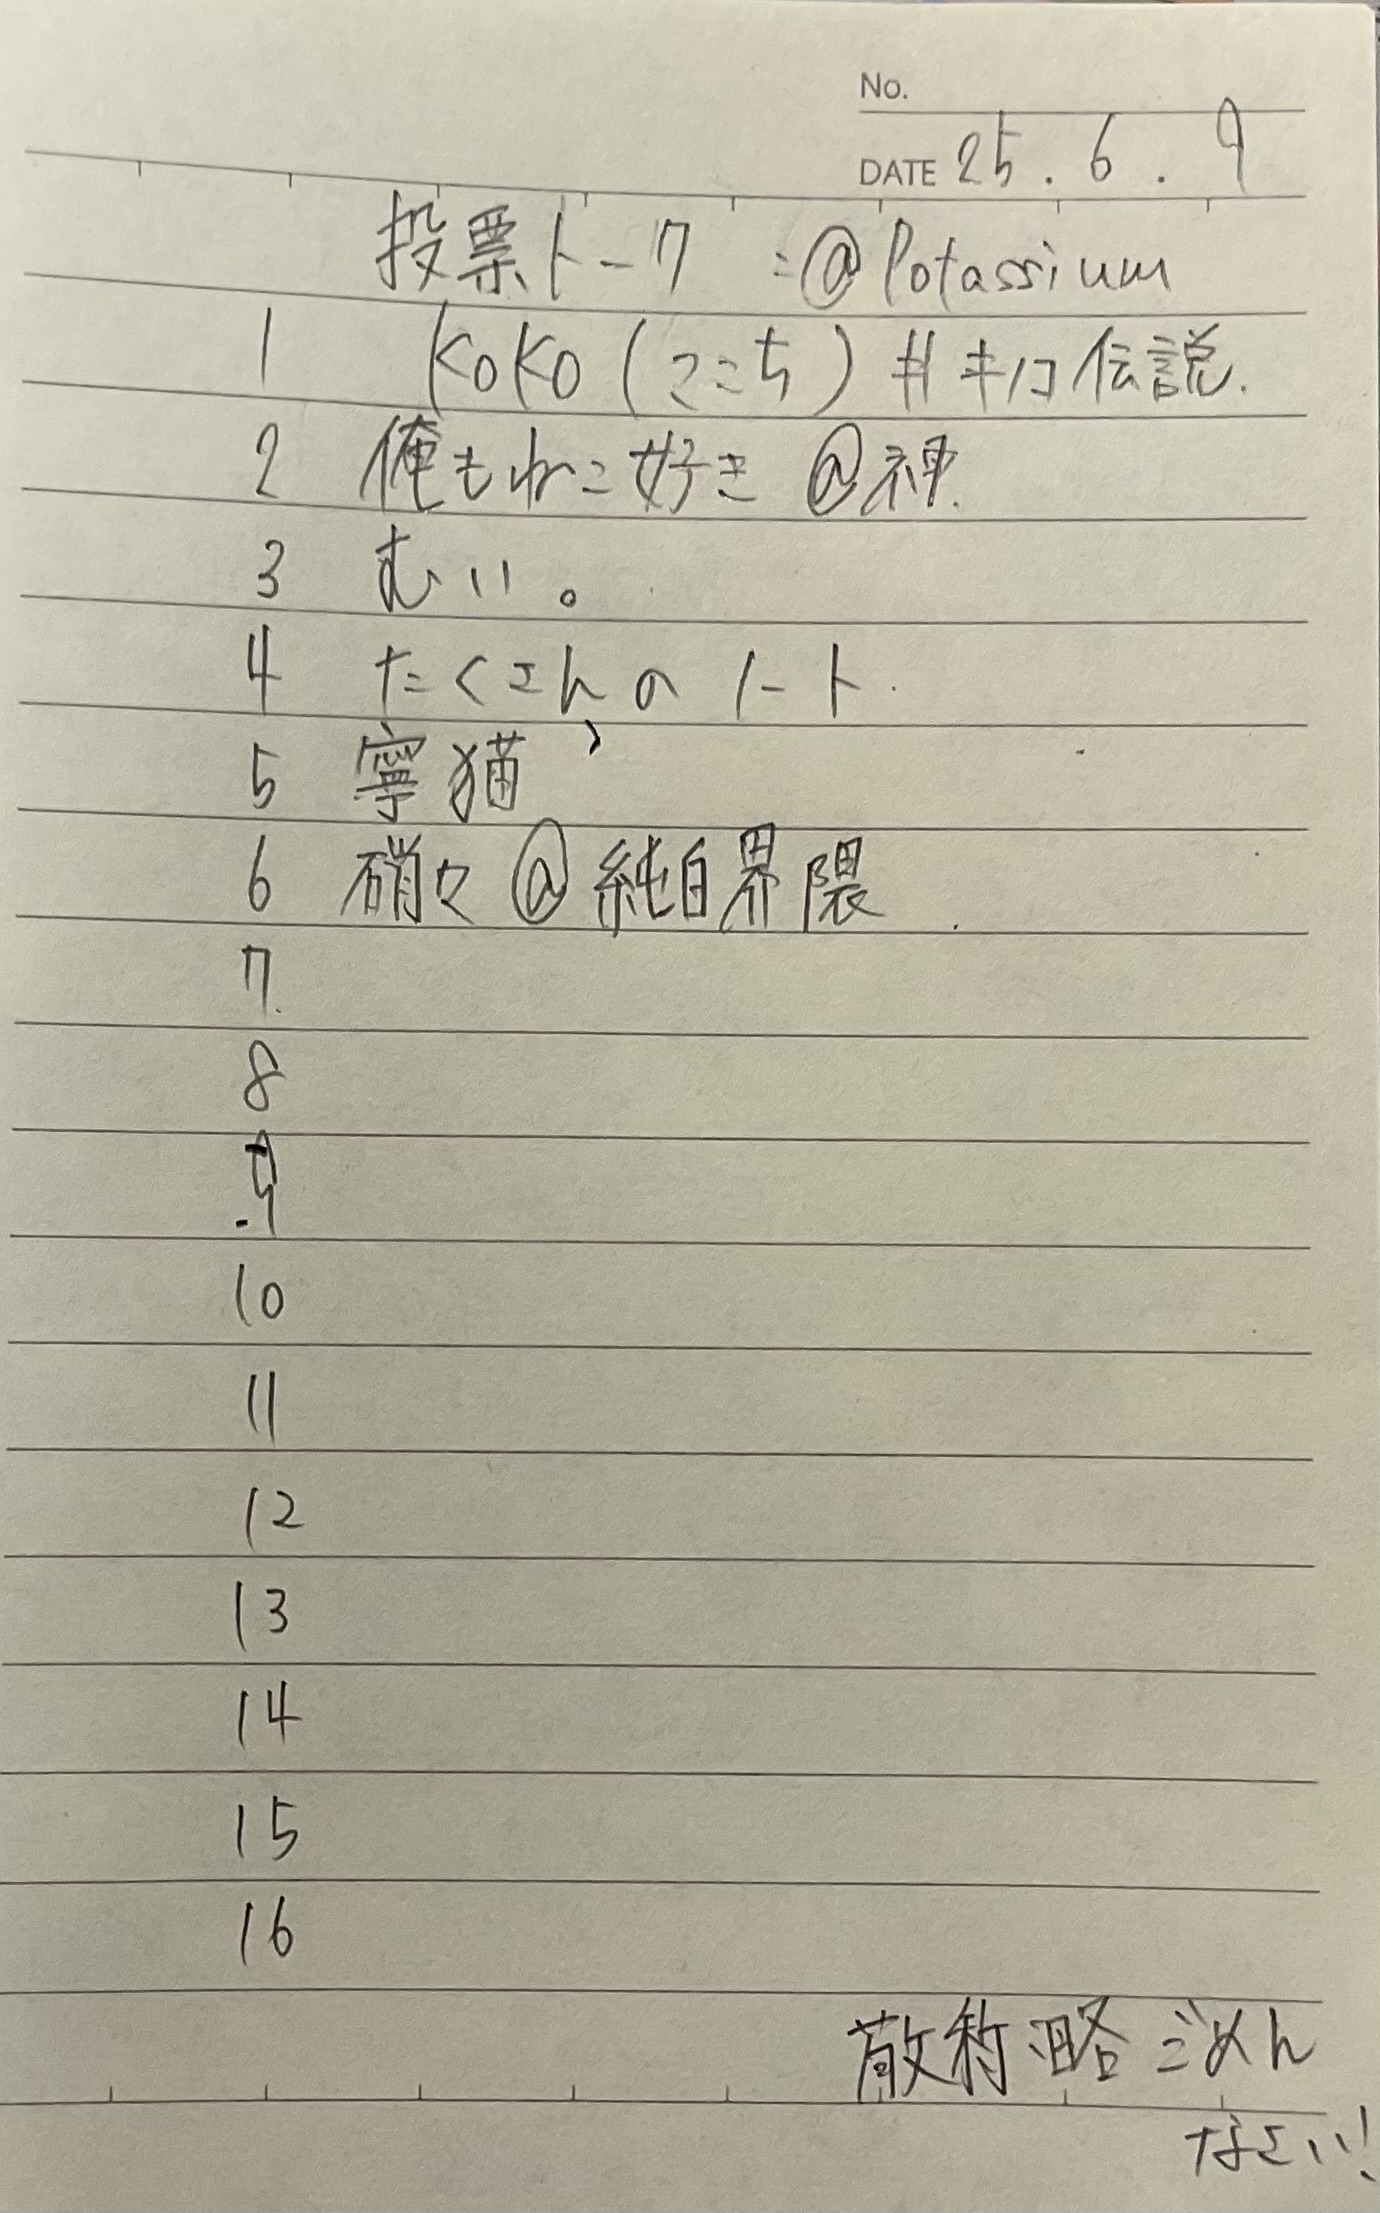 No.
DATE 25.6.9
投票トーク :@Potassium
1 KOKO(ここち)#キノコ伝説.
2 俺もねこ好き@神.
3 むい。
4 たくさんのノート.
5 寧猫
6 硝々@純白界隈
7
8
9
10
11
12
13
14
15
16
敬称略ごめん
なさい!